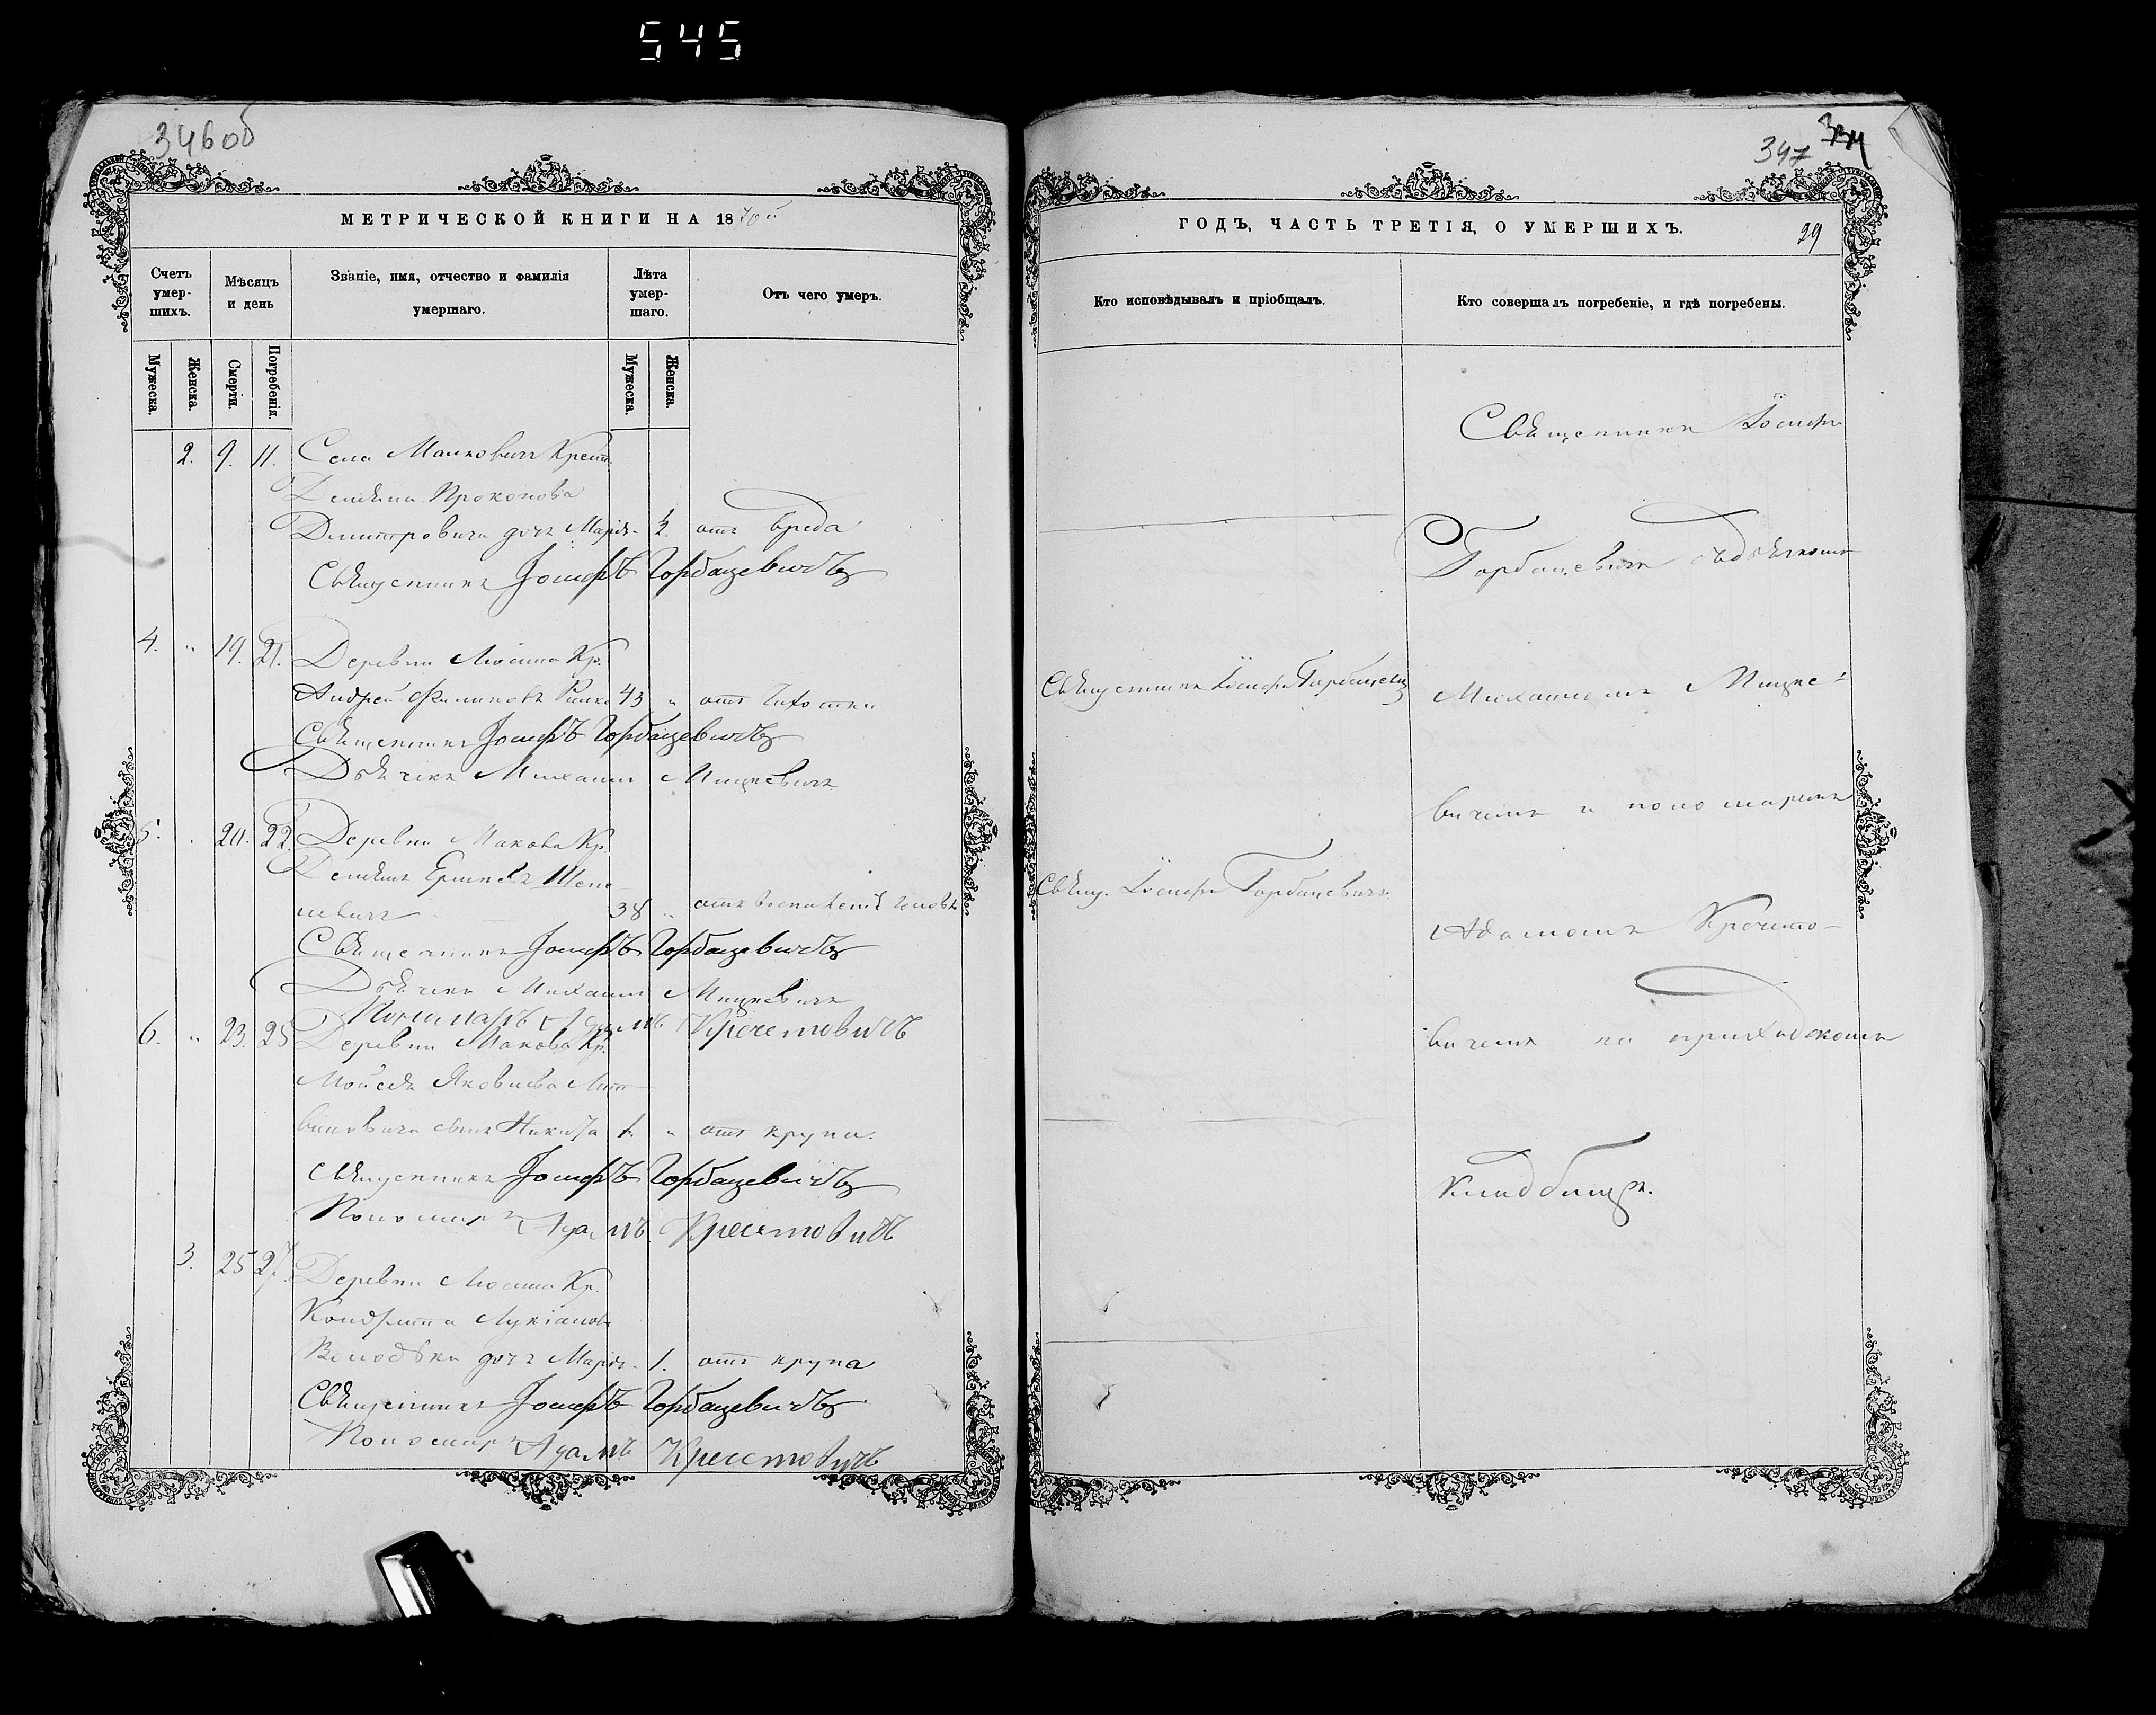 545
346об
МЕТРИЧЕСКОЙ КНИГИ НА 1870й
Счетъ умер-шихъ.
Мѣсяцъ и день
Званіе, имя, отчество и фамилія умершаго.
Лѣта умер-шаго.
Отъ чего умеръ.
Мужеска.
Женска.
Смерти.
Погребенія.
Мужеска.
Женска.
2. 9. 11. Села Малковичъ Крест.
Демяна Прокопова
Дмитровича дочь Марія 1/2. отъ вреда
Священникъ Іосифъ Горбацевичъ
4. " 19. 21. Деревни Люсина Кр.
Андрей Филиповъ 43 " отъ чахотки
Священникъ Іосифъ Горбацевичъ
Дьячекъ Михаилъ Мицкевичъ
5. 20. 22. Деревни Макова Кр.
Демянъ
38 " отъ воспаленія головы
Священникъ Іосифъ Горбацевичъ
Дьячекъ Михаилъ Мицкевичъ
Пономаръ Адамъ Кречетовичъ
6. " 23. 25 Деревни Макова Кр.
Мойсея Яковлева Лит-
виновича сынъ Никита 1. " отъ крупа.
Священникъ Іосифъ Горбацевичъ
Пономаръ Адамъ Кречетовичъ
3. 25 27. Деревни Люсина Кр.
Кондрата Лукіанова
Володька дочь Марія 1. отъ крупа
Священникъ Іосифъ Горбацевичъ
Пономаръ Адамъ Кречетовичъ
347 334
ГОДЪ, ЧАСТЬ ТРЕТІЯ, О УМЕРШИХЪ.
29
Кто исповѣдывалъ и пріобщалъ.
Кто совершалъ погребеніе, и гдѣ погребены.
Священникъ Іосифъ
Горбацевичъ съ дьячкомъ
Священникъ Іосифъ Горбацевичъ
Михаиломъ Мицке-
вичемъ и пономаремъ
Свящ. Іосифъ Горбацевичъ.
Адамомъ Кречето-
вичемъ на приходскомъ
кладбищѣ.